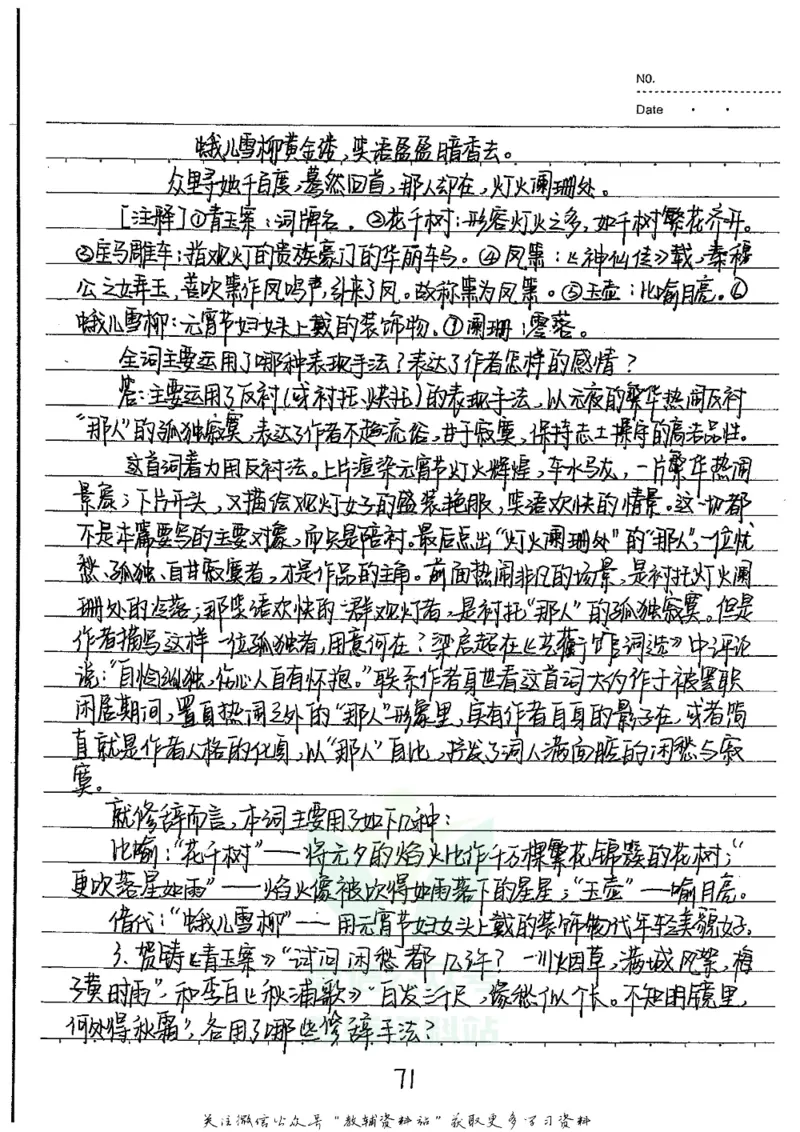 NO.
Date
蛾儿雪柳黄金缕,笑语盈盈暗香去。
众里寻她千百度,蓦然回首,那人却在,灯火阑珊处。
[注释]①青玉案:词牌名。②花千树:形容灯火之多,如千树繁花齐开。
③宝马雕车:指观灯的贵族豪门的华丽车马。④凤箫:《神仙传》载,秦穆
公之女弄玉,善吹箫作凤鸣声,引来了凤。故称箫为凤箫。⑤玉壶:比喻月亮。⑥
蛾儿雪柳:元宵节妇女头上戴的装饰物。⑦阑珊:零落。
全词主要运用了哪种表现手法?表达了作者怎样的感情?
答:主要运用了反衬(或衬托、烘托)的表现手法,以元夜的繁华热闹反衬
“那人”的孤独寂寞,表达了作者不趋流俗,甘于寂寞,保持志士操守的高洁品性。
这首词着力用反衬法。上片渲染元宵节灯火辉煌,车水马龙,一片繁华热闹
景象;下片开头,又描绘观灯女子的盛装艳服,笑语欢快的情景。这一切都
不是本篇要写的主要对象,而只是陪衬。最后点出“灯火阑珊处”的“那人”,一位忧
愁、孤独、自甘寂寞者,才是作品的主角。前面热闹非凡的场景,是衬托灯火阑
珊处的冷落;那笑语欢快的一群观灯者,是衬托“那人”的孤独寂寞。但是
作者描写这样一位孤独者,用意何在?梁启超在《艺蘅馆词选》中评论
说:“自怜幽独,伤心人自有怀抱。”联系作者身世看这首词大约作于被罢职
闲居期间,置身热闹之外的“那人”形象里,自有作者自身的影子在,或者简
直就是作者人格的化身,以“那人”自比,抒发了词人满面腔的闲愁与寂
寞。
就修辞而言,本词主要用了如下几种:
比喻:“花千树”——将元夕的焰火比作千万棵繁花锦簇的花树;“
更吹落星如雨”——焰火像被吹得如雨落下的星星;“玉壶”——喻月亮。
借代:“蛾儿雪柳”——用元宵节妇女头上戴的装饰物代年轻美貌女子。
3、贺铸《青玉案》“试问闲愁都几许?一川烟草,满城风絮,梅
子黄时雨”,和李白《秋浦歌》“白发三千丈,缘愁似个长。不知明镜里,
何处得秋霜”,各用了哪些修辞手法?
71
关注微信公众号“教辅资料站”获取更多学习资料